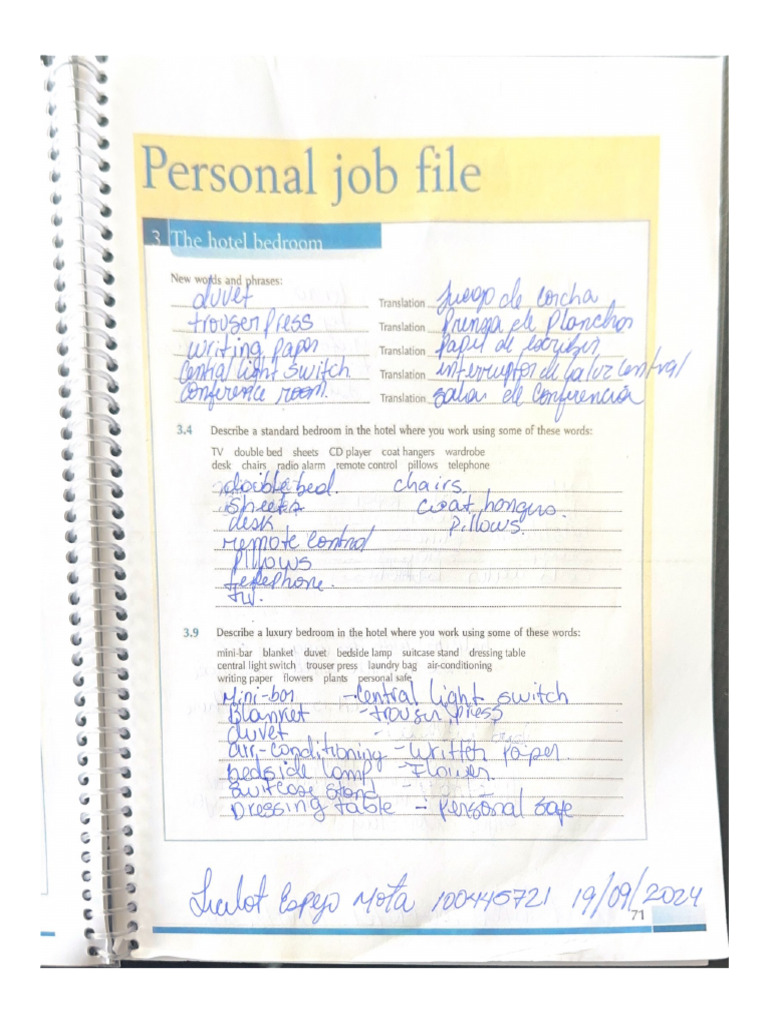 Personal job file
3 The hotel bedroom
New words and phrases:
duvet Translation Juego de corcha
trouser press Translation Prensa de Planchos
writing paper Translation Papel de escribir
Central light switch Translation interruptor de la luz central
Conference room. Translation salas de Conferencia
3.4 Describe a standard bedroom in the hotel where you work using some of these words:
TV double bed sheets CD player coat hangers wardrobe
desk chairs radio alarm remote control pillows telephone
double bed. chairs.
Sheets
desk Pillows.
remote Control
Pllows
telephone.
TV.
3.9 Describe a luxury bedroom in the hotel where you work using some of these words:
mini-bar blanket duvet bedside lamp suitcase stand dressing table
central light switch trouser press laundry bag air-conditioning
writing paper flowers plants personal safe
Mini-bar -Central light switch
Blanket -trouser press
duvet -
air-conditioning -Written paper.
bedside lamp -Flower.
Suitcase stand -
Dressing table - Personal safe
Espejo Mota 100445721 19/09/2024
71